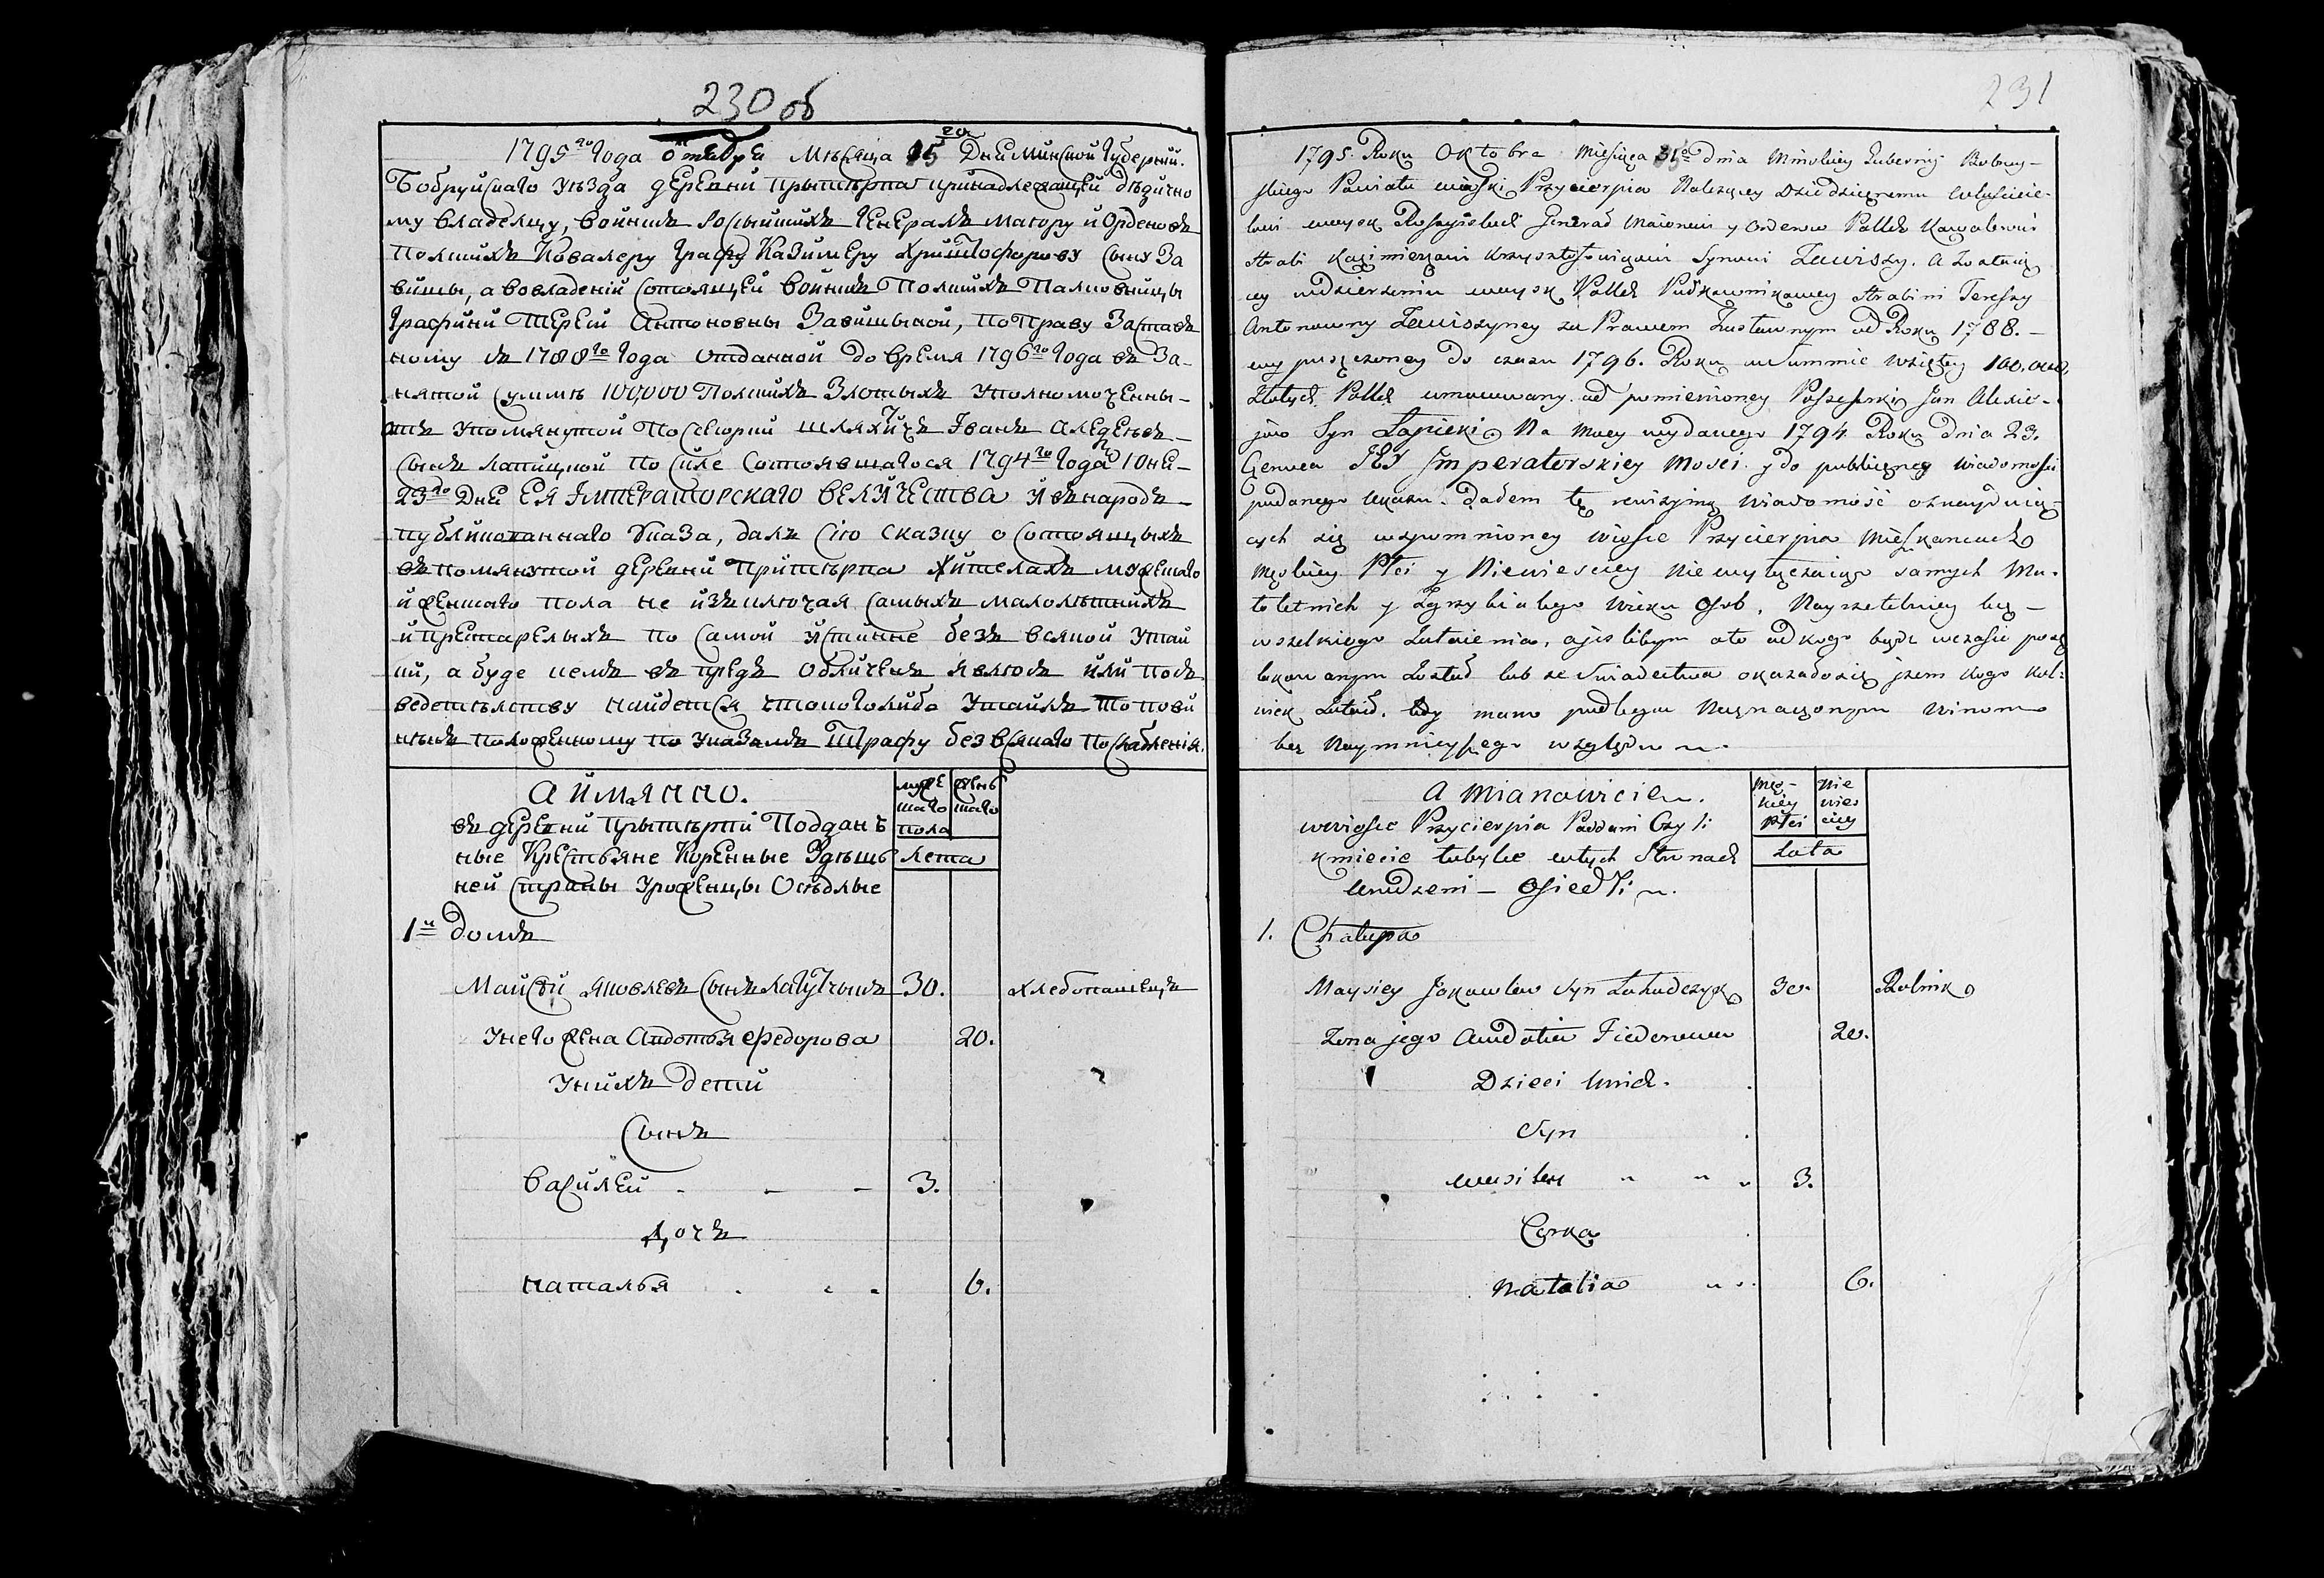 230 об
1795го Года октебре Месяца 15го Дне Минской Губерний.
Бобруйскаго уезда деревни Прытерпа принадлежащей дедично
му владелцу, войскъ Росыйскихъ Генералъ Маюору и Орденовъ
Полскихъ Ковалеру Графу Казимеру Хриштофорову сыну За
вишы, а вовладений состоящей войскъ Полскихъ Палковницы
Графини Терезй Антоновны Завишыной, по праву Застав
ному съ 1788го Года отданной до время 1796го Года въ За-
нятой сумме 100,000 Полскихъ Злотыхъ Уполномоченны-
мъ Упомянутой Посесорки шляхтичъ Іванъ
сынъ Лапицкой по силе состоявшагося 1794го Года Юне-
23го Дне ЕЯ Імператорскаго Величества и въ народъ
публикованнаго Указа, далъ сию сказку о состоящыхъ
въ помянутой деревни Притерпа Жителахъ мужескаго
и женскаго пола не изъключая самыхъ малолетнихъ
и престарелыхъ по самой истинне безъ всякой утай
ки, а буде кемъ въ предъ обличенъ явлюсь или посъ
ведетельству найдется что коголибо утаилъ то пови
ненъ положенному по Указамъ Штрафу без всякаго послабленія.
Аймянно.
въ деревни Прытерпи Поддань
ные Крестьяне Коренные Здешь
ней страны Уроженцы Оседлые
муже
скаго
пола
жень
скаго
лета
1й Домъ
Майсей Яковлевъ сынъ Лагутчыкъ 30. хлебопашецъ
Унего жена Авдотья Федорова 20.
Унихъ дети
Сынъ
Василей - - - 3.
Дочь
Наталья . . . 6.
231
1795. Roku Oktobra Miesiąca 15o Dnia Minskiey Guberny Bobruy-
skiego Powiatu wioski Przycierpia Należącey Dziedzicznemu Właścicie-
lowi woysk Rossyiskich Generał Maiorowi y Orderow Polskich Kawalerowi
Hrabi Kazimierzowi Krzysztofowiczowi Synowi Zawiszy. A Zostaią
cey wdzierżeniu woysk Polskich Pułkownikowey Hrabini Teressy
Antonowny Zawiszyney za Prawem Zastawnym od Roku 1788. -
wypuszczoney do czasu 1796. Roku w Summie wziętey 100,000,
Złotych Polskich umocowany od pomienioney Possessorki Jan Alexie-
jow Syn Łapicki Na mocy wydanego 1794 Roku Dnia 23.
Czerwca JEJ Imperatorskiey Mosci y do publiczney wiadomosci
podanego Ukazu. Dałem tę rewizyiną Wiadomość o znayduią-
cych się wspomnioney wiosce Przycierpia Mieszkancach
Męskiey Płci y Niewiesciey nie wyłączaiąc samych Ma-
łoletnich y Zgrzybiałego Wieku Osob, Nayrzetelniey bez -
wszelkiego Zataienia, a jeslibym oto od kogo bądz wczasie posz
lakowanym Został lub ze Swiadectwa okazałosię żem kogo kol-
wiek Zataił. tedy mam podlegac Naznaczonym Winom
bez Naymnieyszego względu
A Mianowicie.
wwiosce Przycierpia Poddani Czyli
Kmiecie tubylce wtych Stronach
Urodzeni - Osiedli
Męz-
kiey
Płci
Nie
wies
ciey
Lata
1. Chałupa
Maysiey Jakowlew Syn Łahudczyk 30. Rolnik
Zona jego Awdotia Fiedorowa 20.
Dzieci Unich.
Syn
Wasiley " " " 3.
Corka
Natalia " " 6.